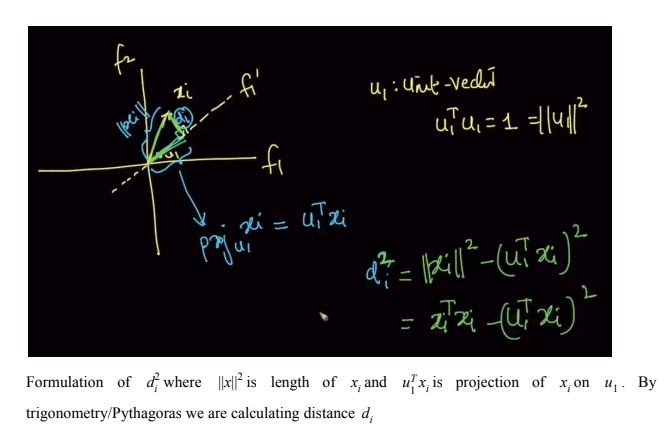 f₂
xᵢ
f₁'
||xᵢ||
dᵢ
u₁
f₁
proj_u₁ xᵢ = u₁ᵀ xᵢ
u₁ : Unit-vector
u₁ᵀ u₁ = 1 = ||u₁||²
dᵢ² = ||xᵢ||² - (u₁ᵀ xᵢ)²
= xᵢᵀxᵢ - (u₁ᵀ xᵢ)²
Formulation of dᵢ² where ||x||² is length of xᵢ and u₁ᵀxᵢ is projection of xᵢ on u₁. By
trigonometry/Pythagoras we are calculating distance dᵢ